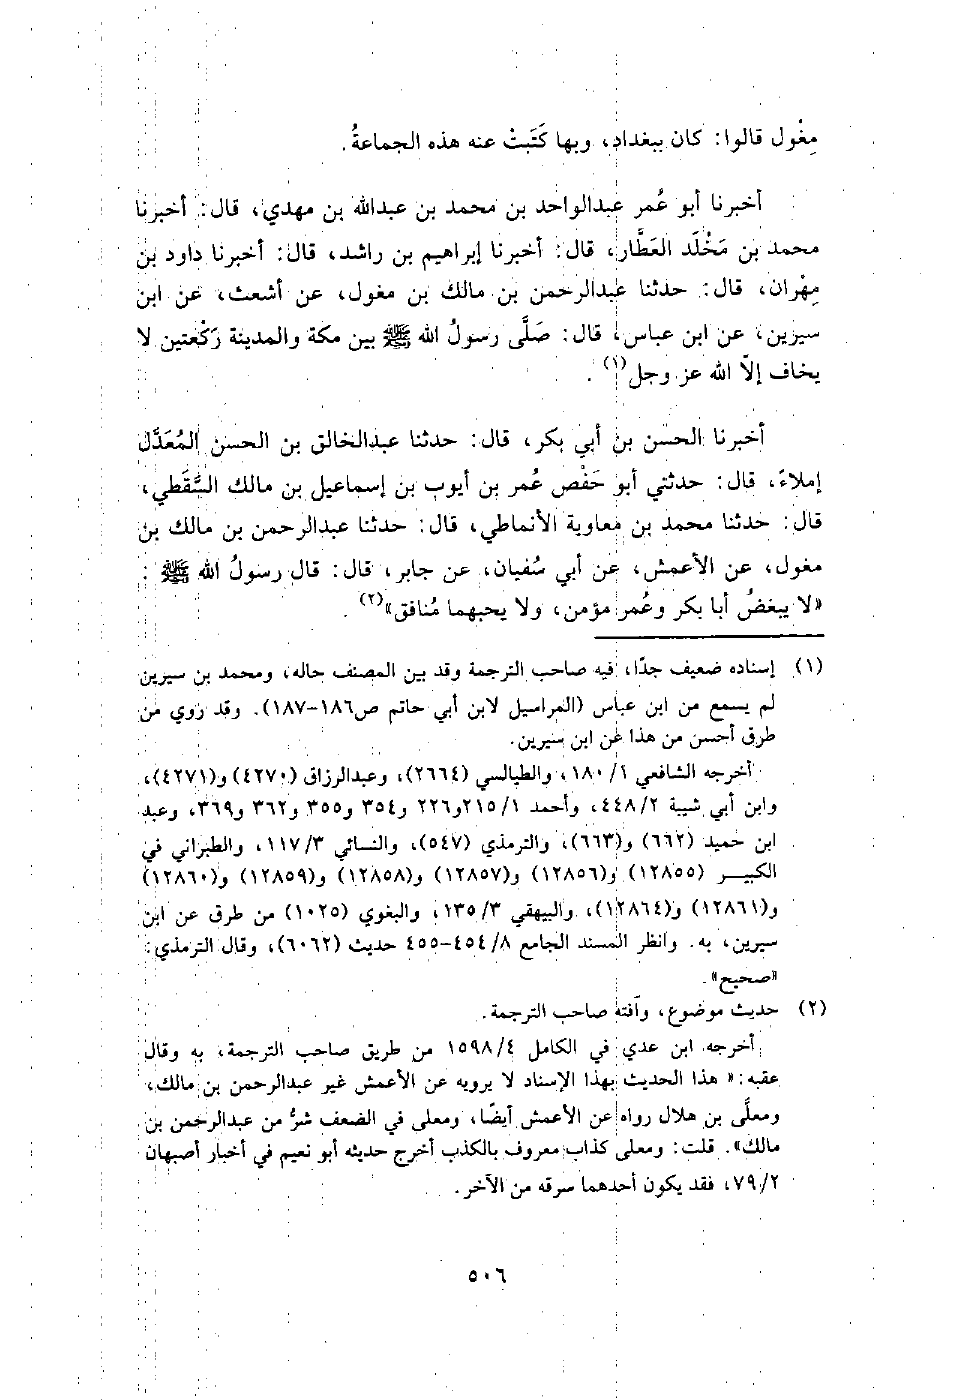 مِغْول قالوا: كان ببغداد، وبها كَتَبتْ عنه هذه الجماعةُ.
أخبرنا أبو عُمر عبدالواحد بن محمد بن عبدالله بن مهدي، قال: أخبرنا
محمد بن مَخْلَد العَطَّار، قال: أخبرنا إبراهيم بن راشد، قال: أخبرنا داود بن
مِهْران، قال: حدثنا عبدالرحمن بن مالك بن مغول، عن أشعث، عن ابن
سيرين، عن ابن عباس، قال: صَلَّى رسولُ الله ﷺ بين مكة والمدينة رَكْعتين لا
يخاف إلاّ الله عز وجل(١).
أخبرنا الحسن بن أبي بكر، قال: حدثنا عبدالخالق بن الحسن المُعَدَّل
إملاءً، قال: حدثني أبو حَفْص عُمر بن أيوب بن إسماعيل بن مالك السَّقَطي،
قال: حدثنا محمد بن معاوية الأنماطي، قال: حدثنا عبدالرحمن بن مالك بن
مغول، عن الأعمش، عن أبي سُفيان، عن جابر، قال: قال رسولُ الله ﷺ:
«لا يبغضُ أبا بكر وعُمر مؤمن، ولا يحبهما مُنافق»(٢).
(١) إسناده ضعيف جدًا، فيه صاحب الترجمة وقد بين المصنف حاله، ومحمد بن سيرين
لم يسمع من ابن عباس (المراسيل لابن أبي حاتم ص١٨٦-١٨٧). وقد روي من
طرق أحسن من هذا عن ابن سيرين.
أخرجه الشافعي ١/ ١٨٠، والطيالسي (٢٦٦٤)، وعبدالرزاق (٤٢٧٠) و(٤٢٧١)،
وابن أبي شيبة ٢/ ٤٤٨، وأحمد ١/ ٢١٥ و٢٢٦ و٣٥٤ و٣٥٥ و٣٦٢ و٣٦٩، وعبد
ابن حميد (٦٦٢) و(٦٦٣)، والترمذي (٥٤٧)، والنسائي ٣/ ١١٧، والطبراني في
الكبير (١٢٨٥٥) و(١٢٨٥٦) و(١٢٨٥٧) و(١٢٨٥٨) و(١٢٨٥٩) و(١٢٨٦٠)
و(١٢٨٦١) و(١٢٨٦٤)، والبيهقي ٣/ ١٣٥، والبغوي (١٠٢٥) من طرق عن ابن
سيرين، به. وانظر المسند الجامع ٨/ ٤٥٤-٤٥٥ حديث (٦٠٦٢)، وقال الترمذي:
«صحيح».
(٢) حديث موضوع، وآفته صاحب الترجمة.
أخرجه ابن عدي في الكامل ٤/ ١٥٩٨ من طريق صاحب الترجمة، به وقال
عقبه: « هذا الحديث بهذا الإسناد لا يرويه عن الأعمش غير عبدالرحمن بن مالك،
ومعلَّى بن هلال رواه عن الأعمش أيضًا، ومعلى في الضعف شرُّ من عبدالرحمن بن
مالك». قلت: ومعلى كذاب معروف بالكذب أخرج حديثه أبو نعيم في أخبار أصبهان
٢/ ٧٩، فقد يكون أحدهما سرقه من الآخر.
٥٠٦